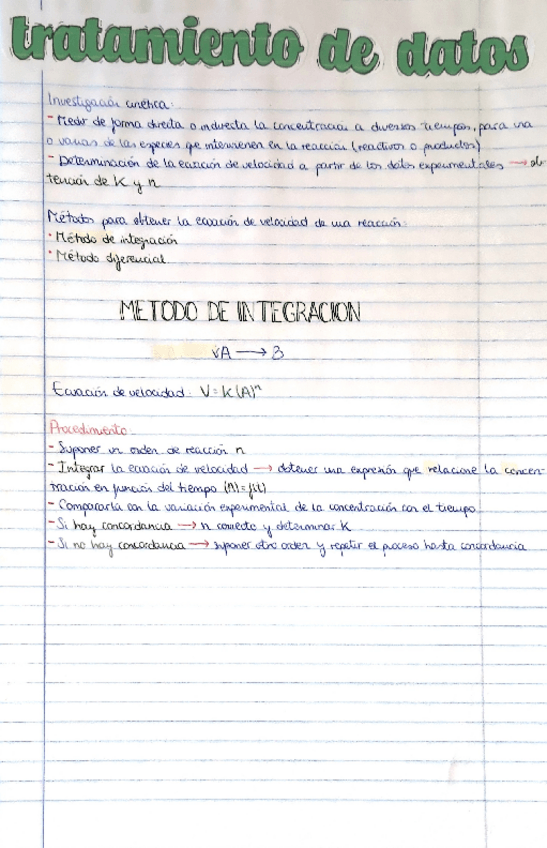 tratamiento de datos
Investigación cinética:
- Medir de forma directa o indirecta la concentración a diversos tiempos, para una
o varias de las especies que intervienen en la reacción (reactivos o productos)
- Determinación de la ecuación de velocidad a partir de los datos experimentales → ob-
tención de K y n
Métodos para obtener la ecuación de velocidad de una reacción:
· Método de integración
· Método diferencial
METODO DE INTEGRACION
νA → B
Ecuación de velocidad: V = K(A)ⁿ
Procedimiento:
- Suponer un orden de reacción n
- Integrar la ecuación de velocidad → obtener una expresión que relacione la concen-
tración en función del tiempo (A)=f(t)
- Compararla con la variación experimental de la concentración con el tiempo
- Si hay concordancia → n correcto y determinar K
- Si no hay concordancia → suponer otro orden y repetir el proceso hasta concordancia